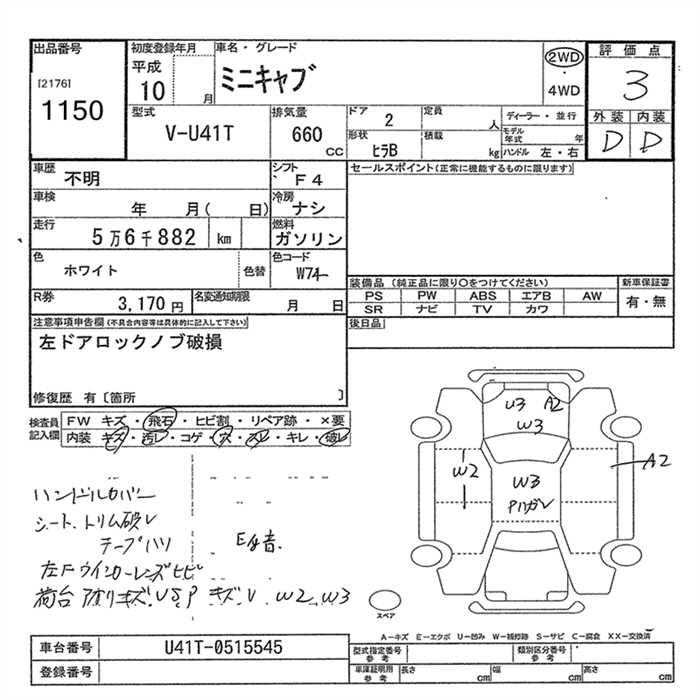 出品番号
[2176]
1150
初度登録年月
平成
10 月
車名・グレード
ミニキャブ
2WD
・
4WD
評価点
3
外装 内装
D D
型式
V-U41T
排気量
660
CC
ドア
2
定員
人
形状
ヒラB
積載
kg
ディーラー・並行
モデル
年式 年
ハンドル 左・右
車歴
不明
シフト
F4
セールスポイント(正常に機能するものに限ります)
車検
年 月( 日)
冷房
ナシ
走行
5万6千882 km
燃料
ガソリン
色
ホワイト
色替
色コード
W74
R券
3,170 円
名変通知期限
月 日
装備品 (純正品に限り○をつけてください)
PS PW ABS エアB AW
SR ナビ TV カワ
新車保証書
有・無
後日品
注意事項申告欄(不具合内容等は具体的に記入して下さい)
左ドアロックノブ破損
修復歴 有〔箇所 〕
検査員
記入欄
FW キズ・飛石・ヒビ割・リペア跡・×要
内装 キズ・汚レ・コゲ・穴・スレ・キレ・破レ
ハンドルカバー
シート、トリム破レ
テープハリ
E音.
左Fウインカーレンズヒビ
荷台 アオリキズ.
キズ W2 W3
U3 A2
W3
W2
W3
A2
スペア
A－キズ E－エクボ U－凹み W－補修跡 S－サビ C－腐食 XX－交換済
車台番号
U41T-0515545
登録番号
型式指定番号
参考
類別区分番号
参考
車庫証明用
参考
長さ cm
幅 cm
高さ cm